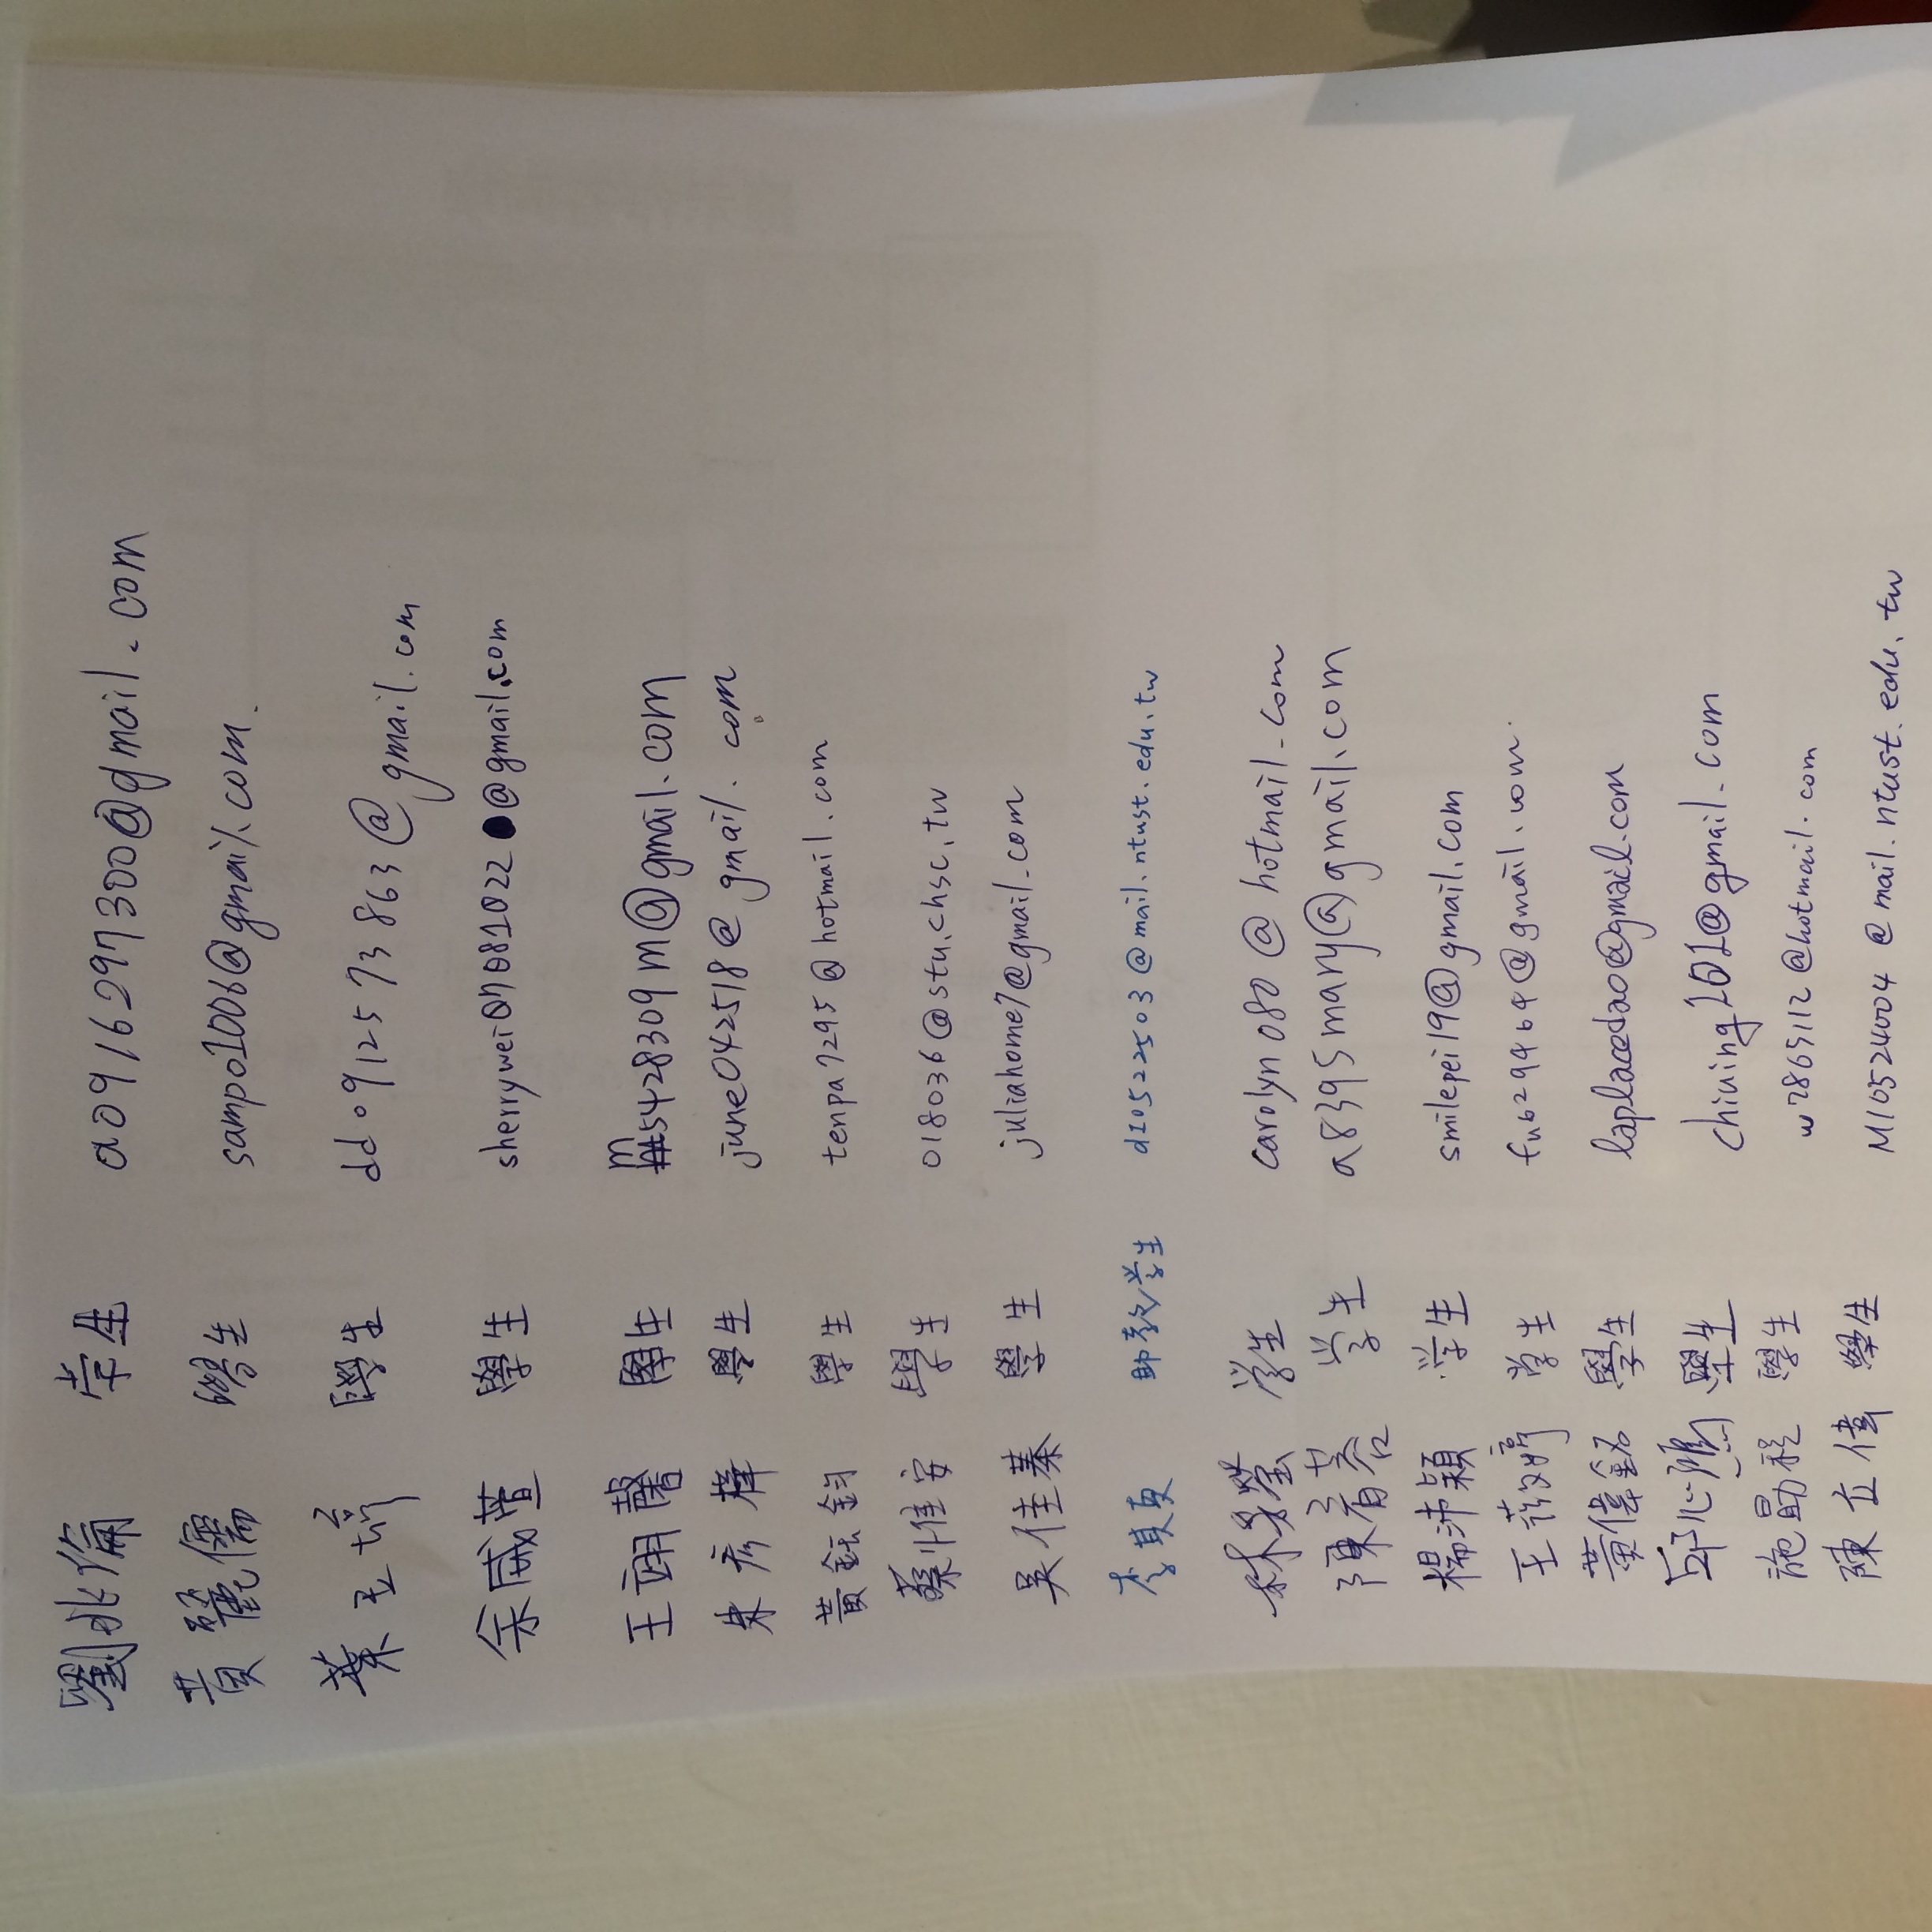 劉兆倫 学生 a0916297300@gmail.com
黃麗儒 學生 sampo1006@gmail.com.
葉玉婷 學生 dd0912573863@gmail.com
余威萱 學生 sherrywei07081022@gmail.com
王翊馨 學生 m5428309m@gmail.com
朱彥樺 學生 june042518@gmail.com
黃鈺鈞 學生 tenpa7295@hotmail.com
蔡惟安 學生 018036@stu.chsc.tw
吳佳蓁 學生 juliahome7@gmail.com
李其真 助教/学生 d10522503@mail.ntust.edu.tw
林芳瑩 学生 carolyn080@hotmail-com
陳育蓉 学生 a8395mary@gmail.com
楊沛穎 学生 smilepei19@gmail.com
王薇婷 学生 fu629464@gmail.com
黃偉銘 學生 laplacedao@gmail.com
邱心 學生 chiuing101@gmail.com
施勛程 學生 w7865112@hotmail.com
陳立偉 學生 M10524004@mail.ntust.edu.tw